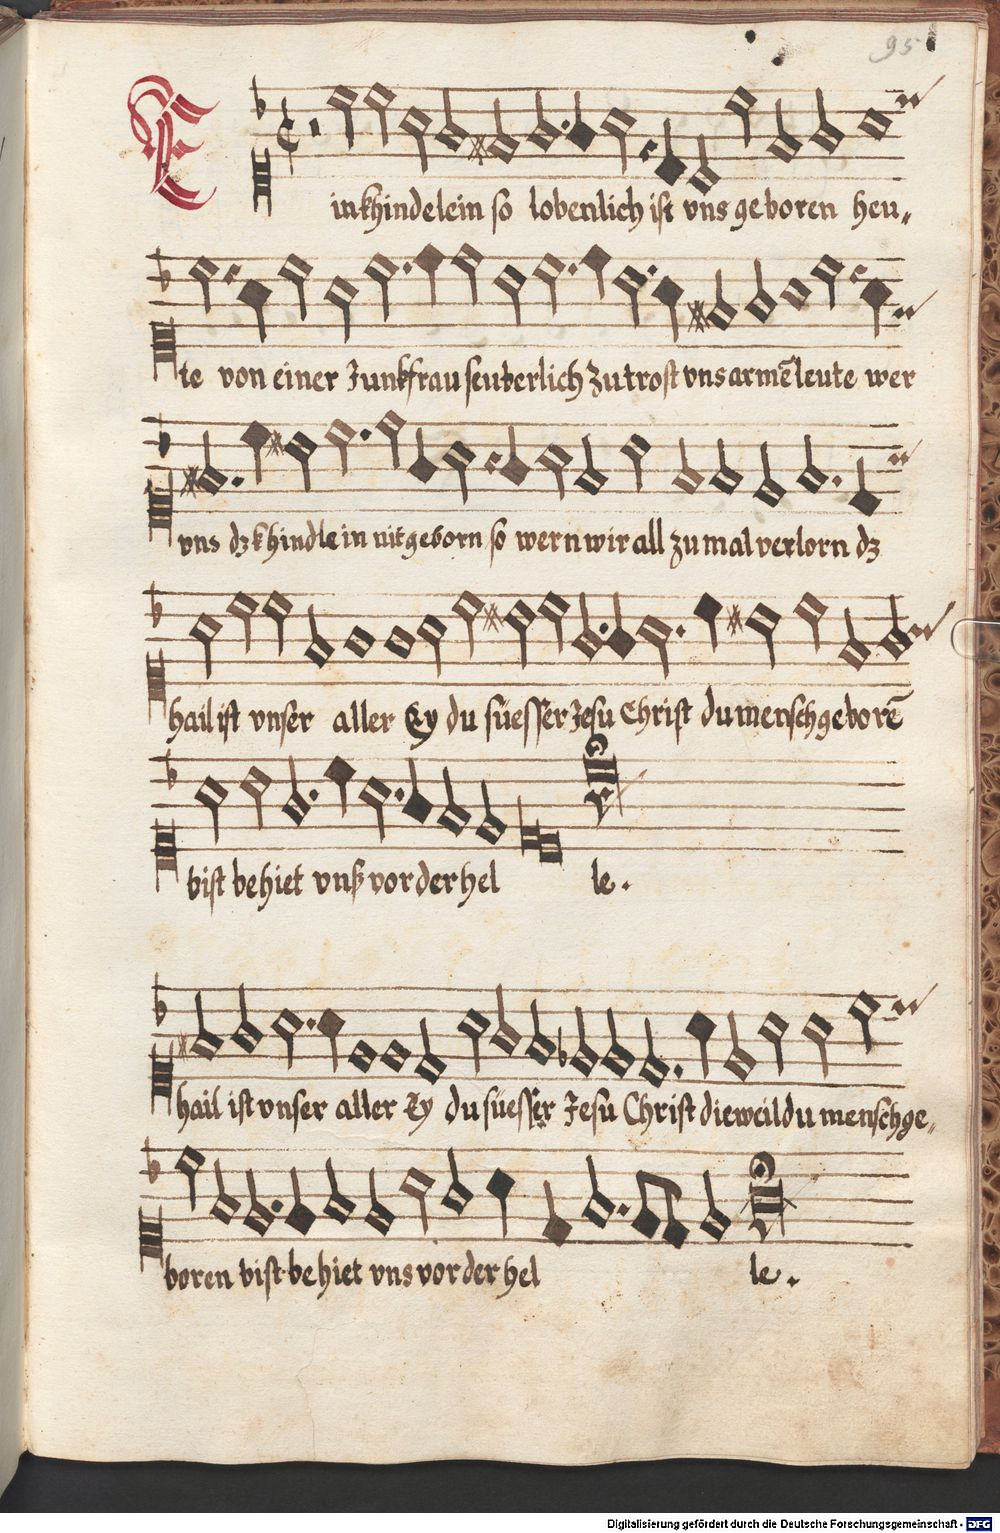 95
Einkhindelein so lobenlich ist vns geboren heu„
te von einer Junkfrau seuberlich Zu trost vns armē leute wer
vns dz khindlein nit geborn so wern wir all zu mal verlorn dz
hail ist vnser aller Ey du süesser Jesu Christ du mensch geborē
bist behiet vnß vor der hel le.
hail ist vnser aller Ey du süesser Jesu Christ dieweil du mensch ge„
boren bist behiet vns vor der hel le.
Digitalisierung gefördert durch die Deutsche Forschungsgemeinschaft - DFG